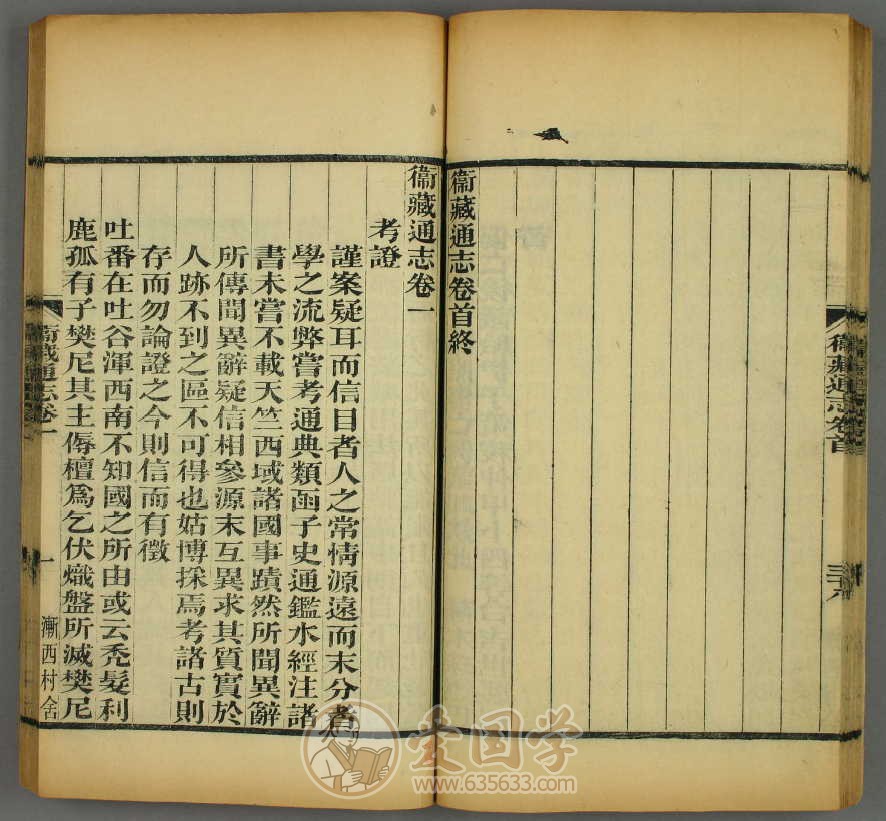 衞藏通志卷首
三十八
衞藏通志卷首終
衞藏通志卷一
考證
謹案疑耳而信目者人之常情源遠而末分者
學之流弊嘗考通典類函子史通鑑水經注諸
書未嘗不載天竺西域諸國事蹟然所聞異辭
所傳聞異辭疑信相參源末互異求其質實於
人跡不到之區不可得也姑博採焉考諸古則
存而勿論證之今則信而有徵
吐番在吐谷渾西南不知國之所由或云禿髮利
鹿孤有子樊尼其主傉檀爲乞伏熾盤所滅樊尼
衞藏通志卷一
一
漸西村舍
爱国学
www.635633.com